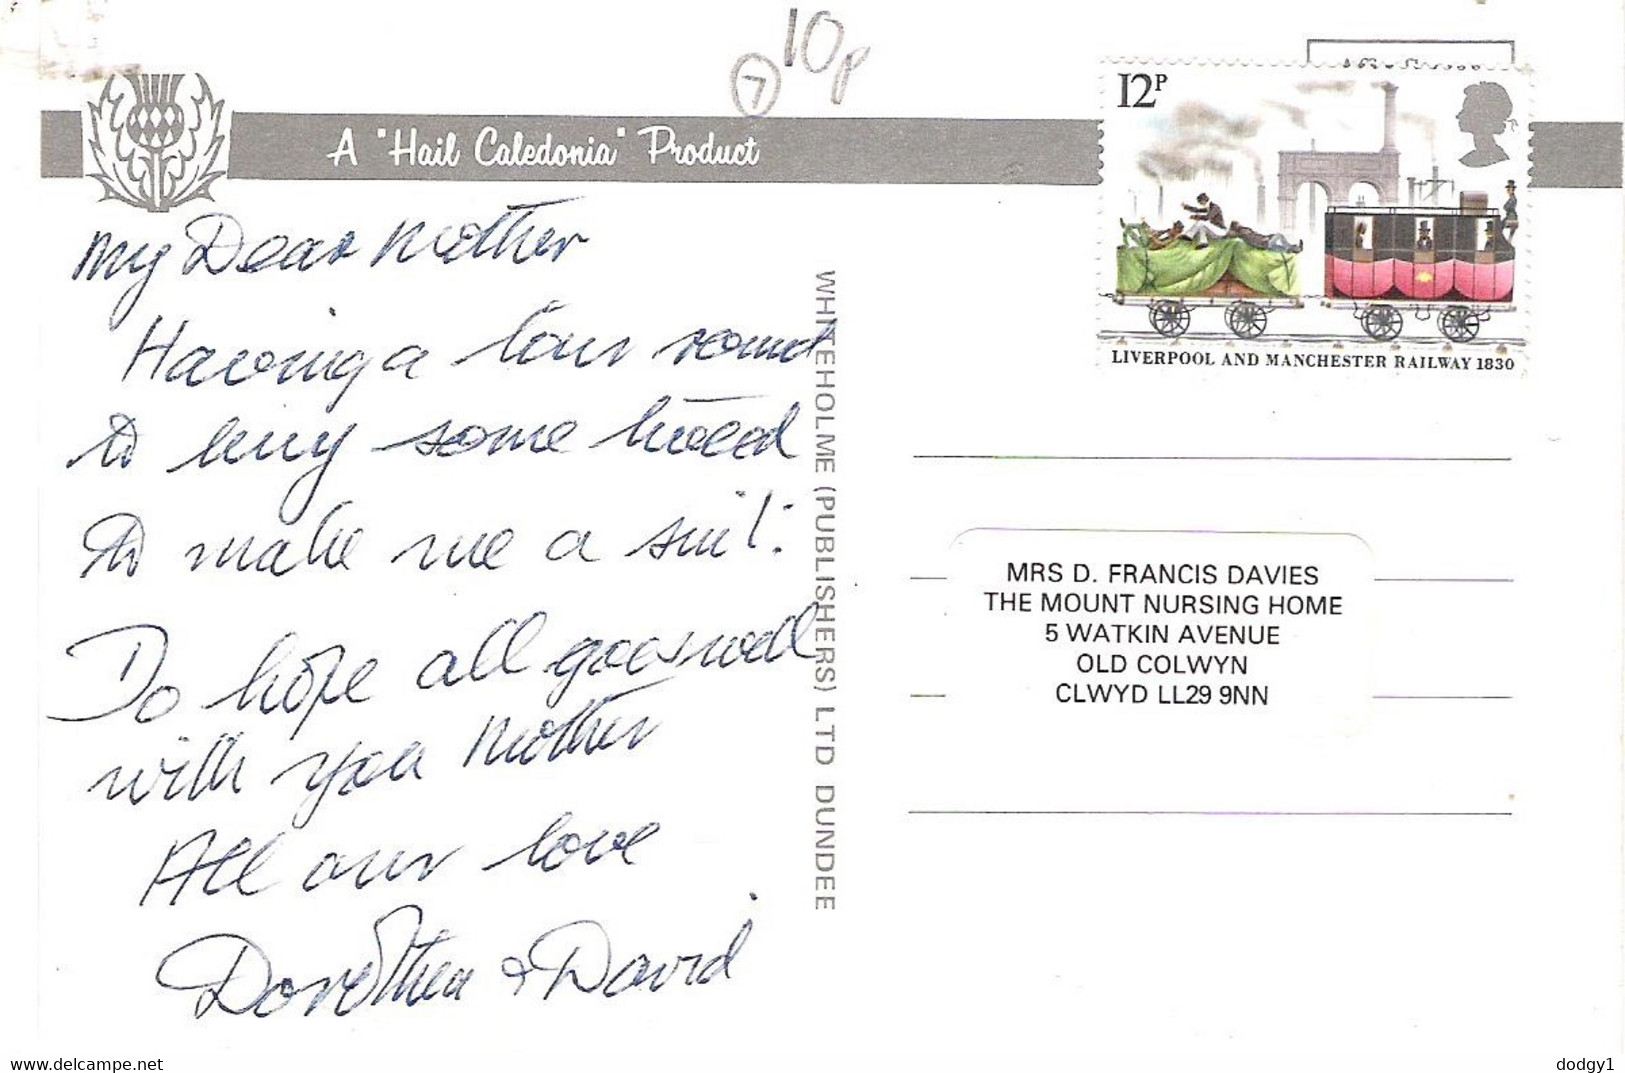 10p
7
A "Hail Caledonia" Product
12P
LIVERPOOL AND MANCHESTER RAILWAY 1830
My Dear Mother
Having a tour round
to buy some tweed
to make me a suit.
Do hope all goes well
with you Mother
All our love
Dorothea & David
WHITEHOLME (PUBLISHERS) LTD DUNDEE
MRS D. FRANCIS DAVIES
THE MOUNT NURSING HOME
5 WATKIN AVENUE
OLD COLWYN
CLWYD LL29 9NN
www.delcampe.net
dodgy1